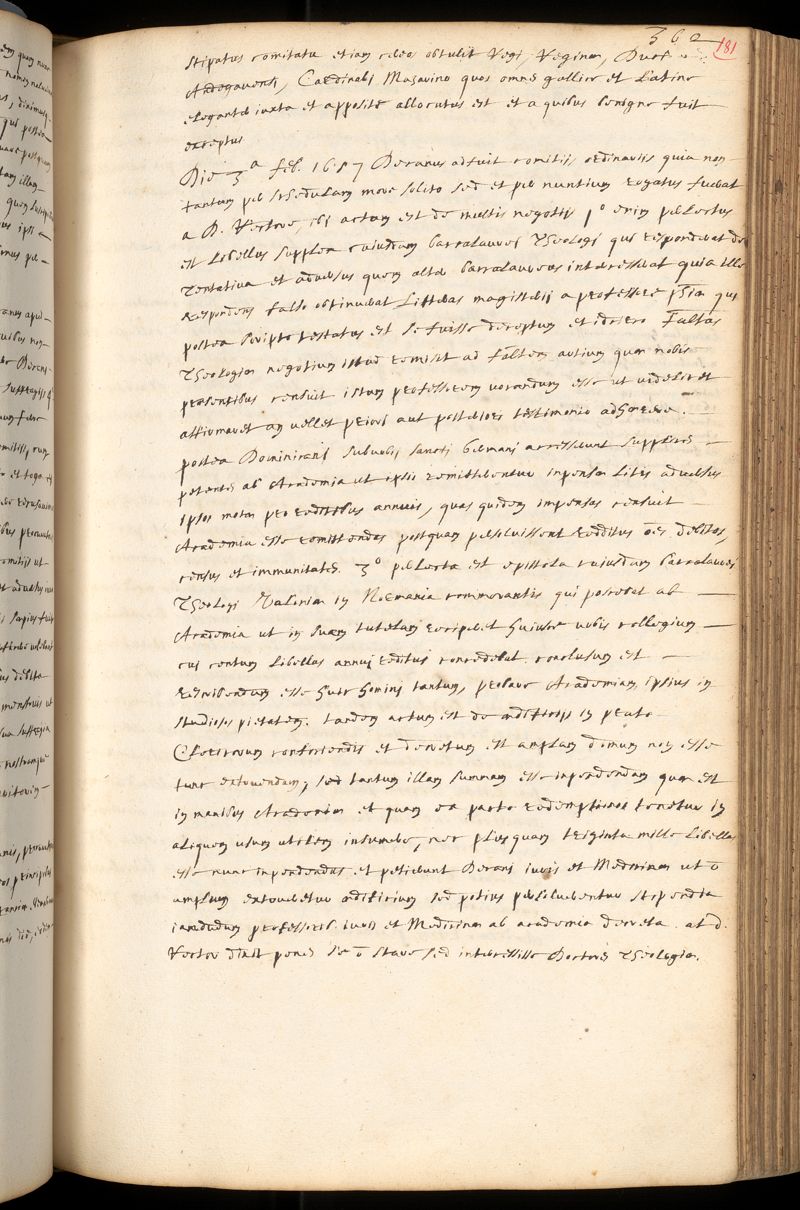 362
181
stipatus comitatu etiam cereos obtulit Regi, Reginæ, Duci
Andegavensi, Cardinali Mazarino quos omnes gallice et Latine
eleganter iuxta et apposite allocutus est et a quibus benigne fuit
exceptus
Die 3ª feb. 1657 Decanus adfuit comitiis ordinariis quia non
tantum per schedulam more solito sed et per nuntium rogatus fuerat
a D. Rectore, ibi actum est de multis negotiis 1º enim perlectus
est Libellus supplex cuiusdam baccalaurei Theologi qui respondebat de
Tentativa et adversus quem alter baccalaureus intercesserat quia ille
Respondens falso obtinuerat Litteras magisterii a professore qui
postea scripto testatus est se fuisse deceptum et ideirco Facultas
Theologiæ negotium istud remisit ad facultatem artium quæ nobis
præsentibus censuit istum professorem vocandum esse ut videlicet
affirmaret an vellet priori aut posteriori testimonio adhærere.
postea Dominicani suburbii sancti Germani accesserunt supplices
petentes ab Academia ut ipsis remitterentur inpensæ Litis adversus
ipsos motæ pro redditibus annuis, quas quidem impensas censuit
Academia esse remittendas postquam persolvissent redditus oēs debitos,
census et immunitates. 3º perlecta est epistola cuiusdam baccalaurei
Theologi Valoniæ in Normania commorantis qui petebat ab
Academia ut in suam tutelam reciperet huiusce urbis collegium
cui centum Libellas annui reditus concederet. conclusum est
Rescribendum esse huic homini tantum, probare Academiam ipsius in
studiosos pietatem. tandem actum est de ædificiis in prato
Clericorum conficiendis et decretum est amplam domum non esse
tunc extruendam, sed tantum illam summam esse inpendendam quæ est
in manibus Academiæ et quam ex pacto redemptionis tenetur in
aliquem usum utilem insumere, nec plusquam triginta mille Libellas
esse nunc inpendendas et petierunt Decani iuris et Medicinæ ut ō
amplum extrueretur ædificium sed potius persolverentur stipendia
iamdudum professoribus iuris et Medicinæ ab academia decreta. at d.
Rector dixit penes se ō stare sed intercessisse Doctores Theologiæ.